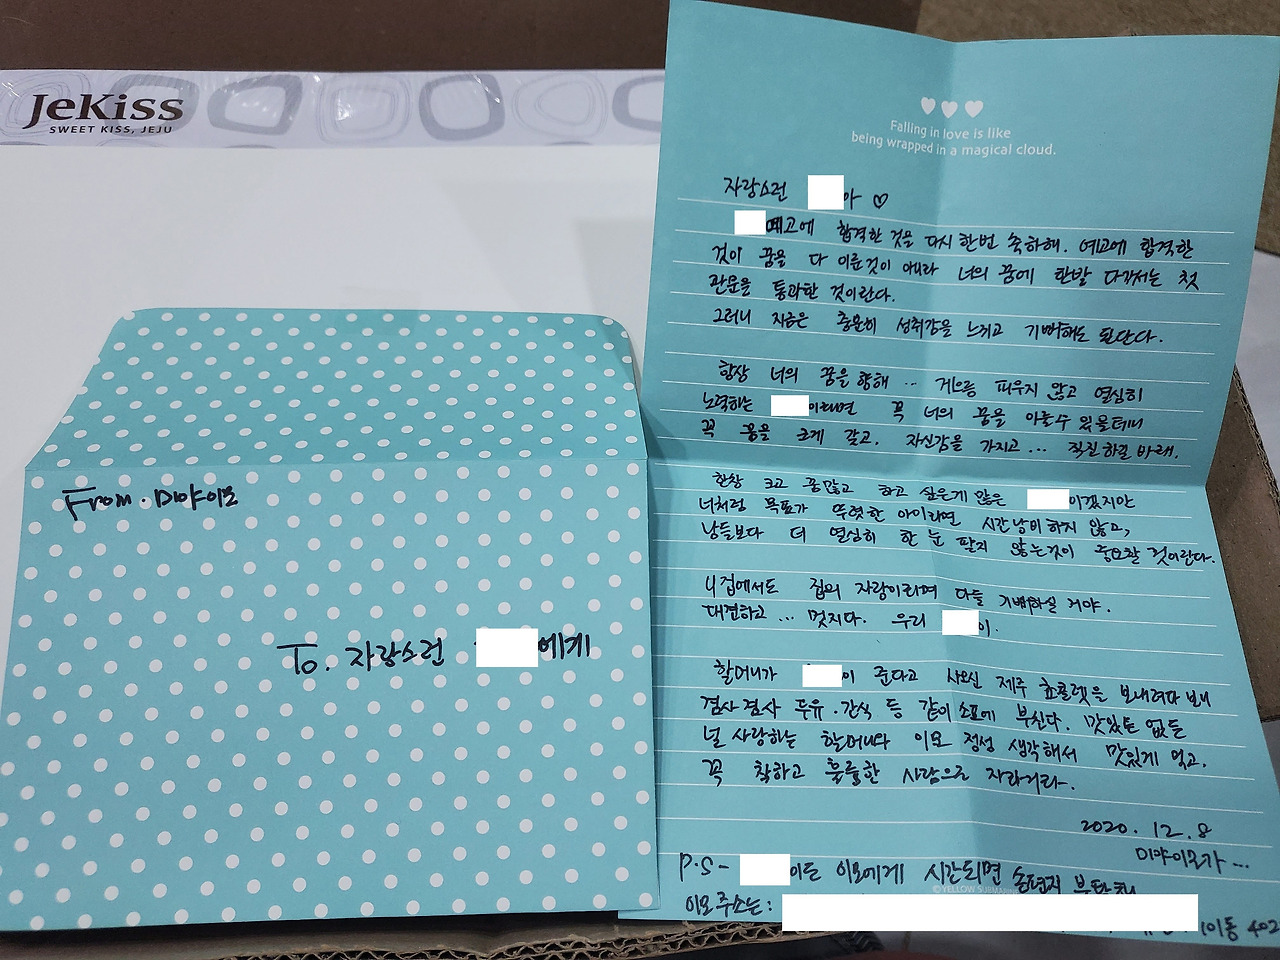 JeKiss
SWEET KISS, JEJU
From. 미야이모
To. 자랑스런 에게
Falling in love is like
being wrapped in a magical cloud.
자랑스런 아 ♡
예고에 합격한 것을 다시 한번 축하해. 예고에 합격한
것이 꿈을 다 이룬것이 아니라 너의 꿈에 한발 다가서는 첫
관문을 통과한 것이란다.
그러니 지금은 충분히 성취감을 느끼고 기뻐해도 된단다.
항상 너의 꿈을 향해 ... 게으름 피우지 않고 열심히
노력하는 이라면 꼭 너의 꿈을 이룰수 있을테니
꼭 꿈을 크게 갖고. 자신감을 가지고 ... 직진하길 바래.
한창 크고 꿈많고 하고 싶은게 많은 이겠지만
너처럼 목표가 뚜렷한 아이라면 시간낭비 하지 않고,
남들보다 더 열심히 한 눈 팔지 않는것이 중요할 것이란다.
니 집에서도 집의 자랑이라며 다들 기뻐하실 거야.
대견하고 ... 멋지다. 우리 이.
할머니가 이 준다고 사오신 제주 쵸콜렛을 보내려다 보내
겸사겸사 두유.간식 등 같이 소포에 부친다. 맛있든 없든
널 사랑하는 할머니와 이모 정성 생각해서 맛있게 먹고.
꼭 착하고 훌륭한 사람으로 자라거라.
2020. 12. 8
미야이모가 ...
P.S - 이든 이모에게 시간되면 손편지 부탁해
© YELLOW SUBMARINE
이모 주소는 :
1이동 402